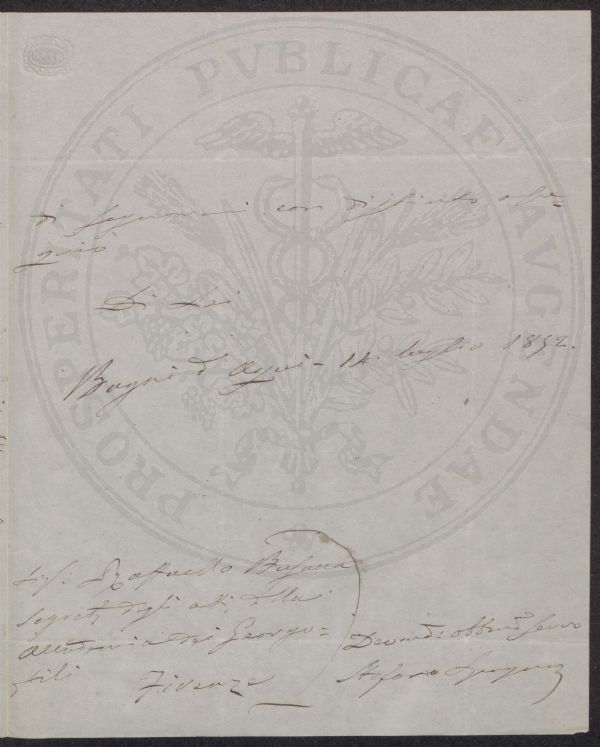 PROSPERITATI PVBLICAE AVGENDAE
di segnarmi con distinto osse=
quio
Di Lei
Bagni d' Acqui - 14. luglio 1852.
Sig. Raffaello Busacca
Segret. degli atti della
Accademia dei Georgo=
fili
Firenze
Devmo: obbmo servo
Stefano